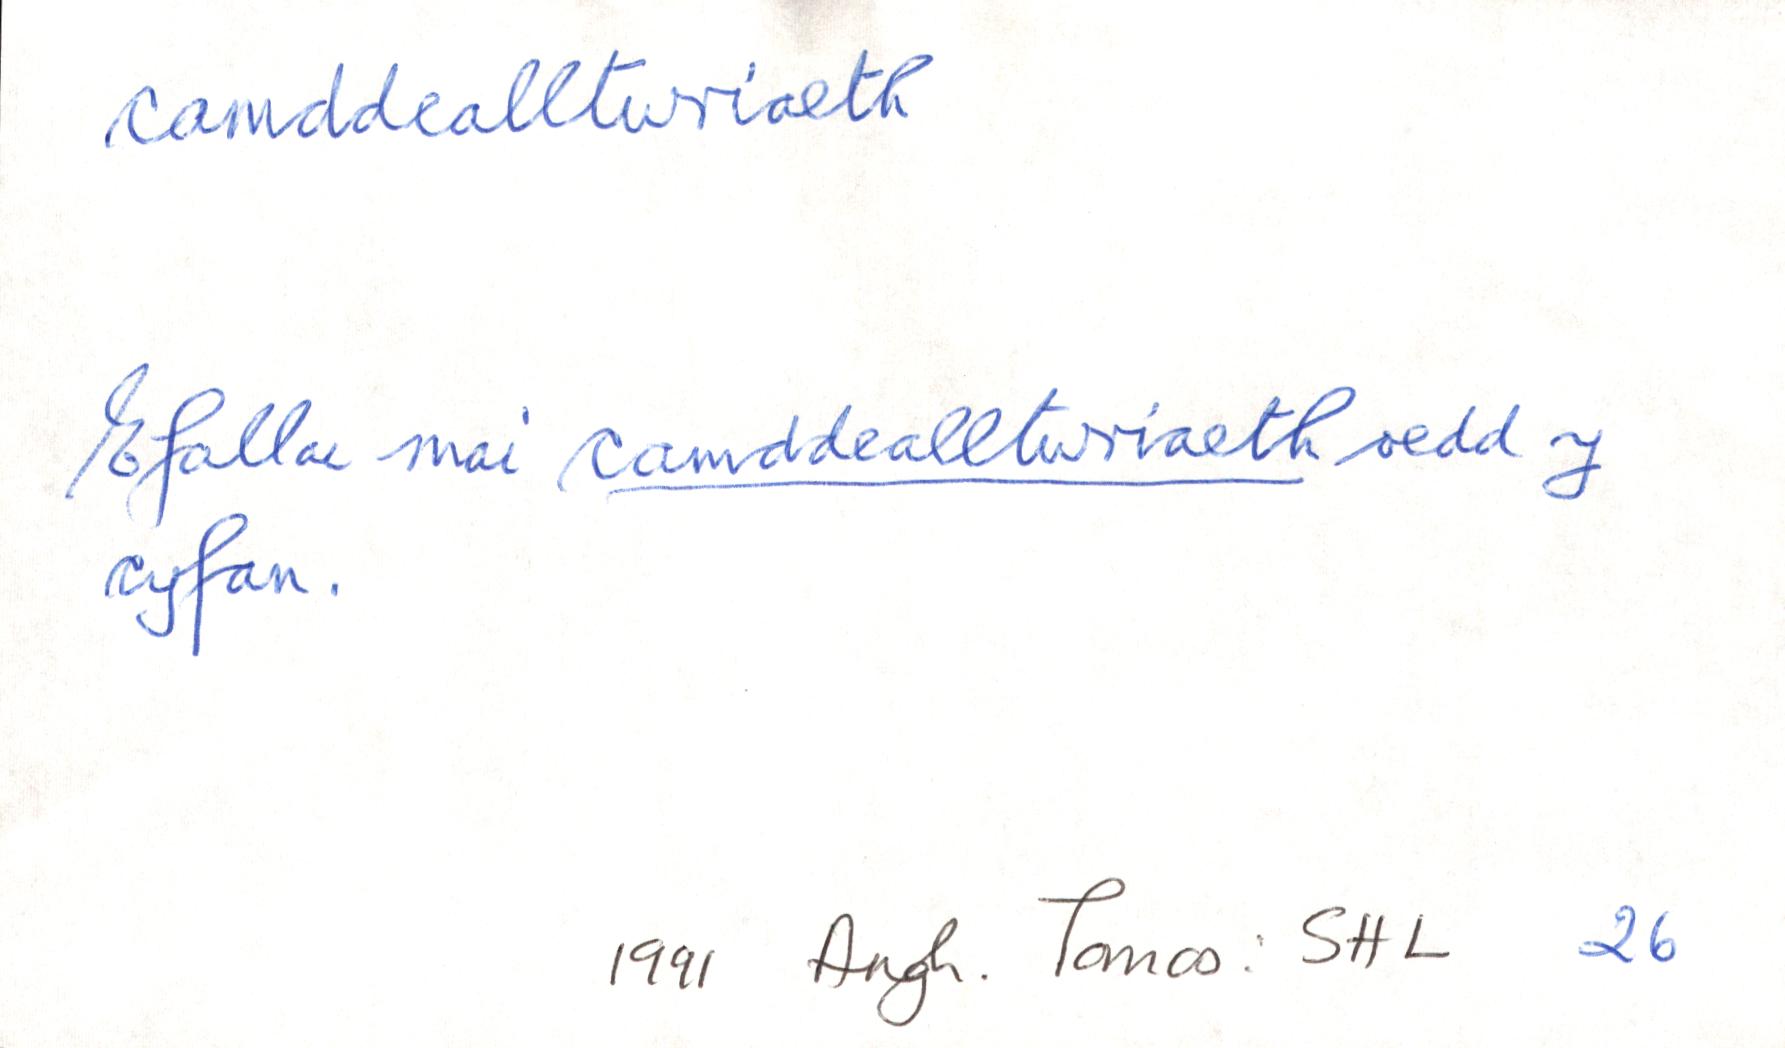 camddealltwriaeth
Efallae mai camddealltwriaeth oedd y
cyfan.
1991 Angh. Tomos: SHL 26